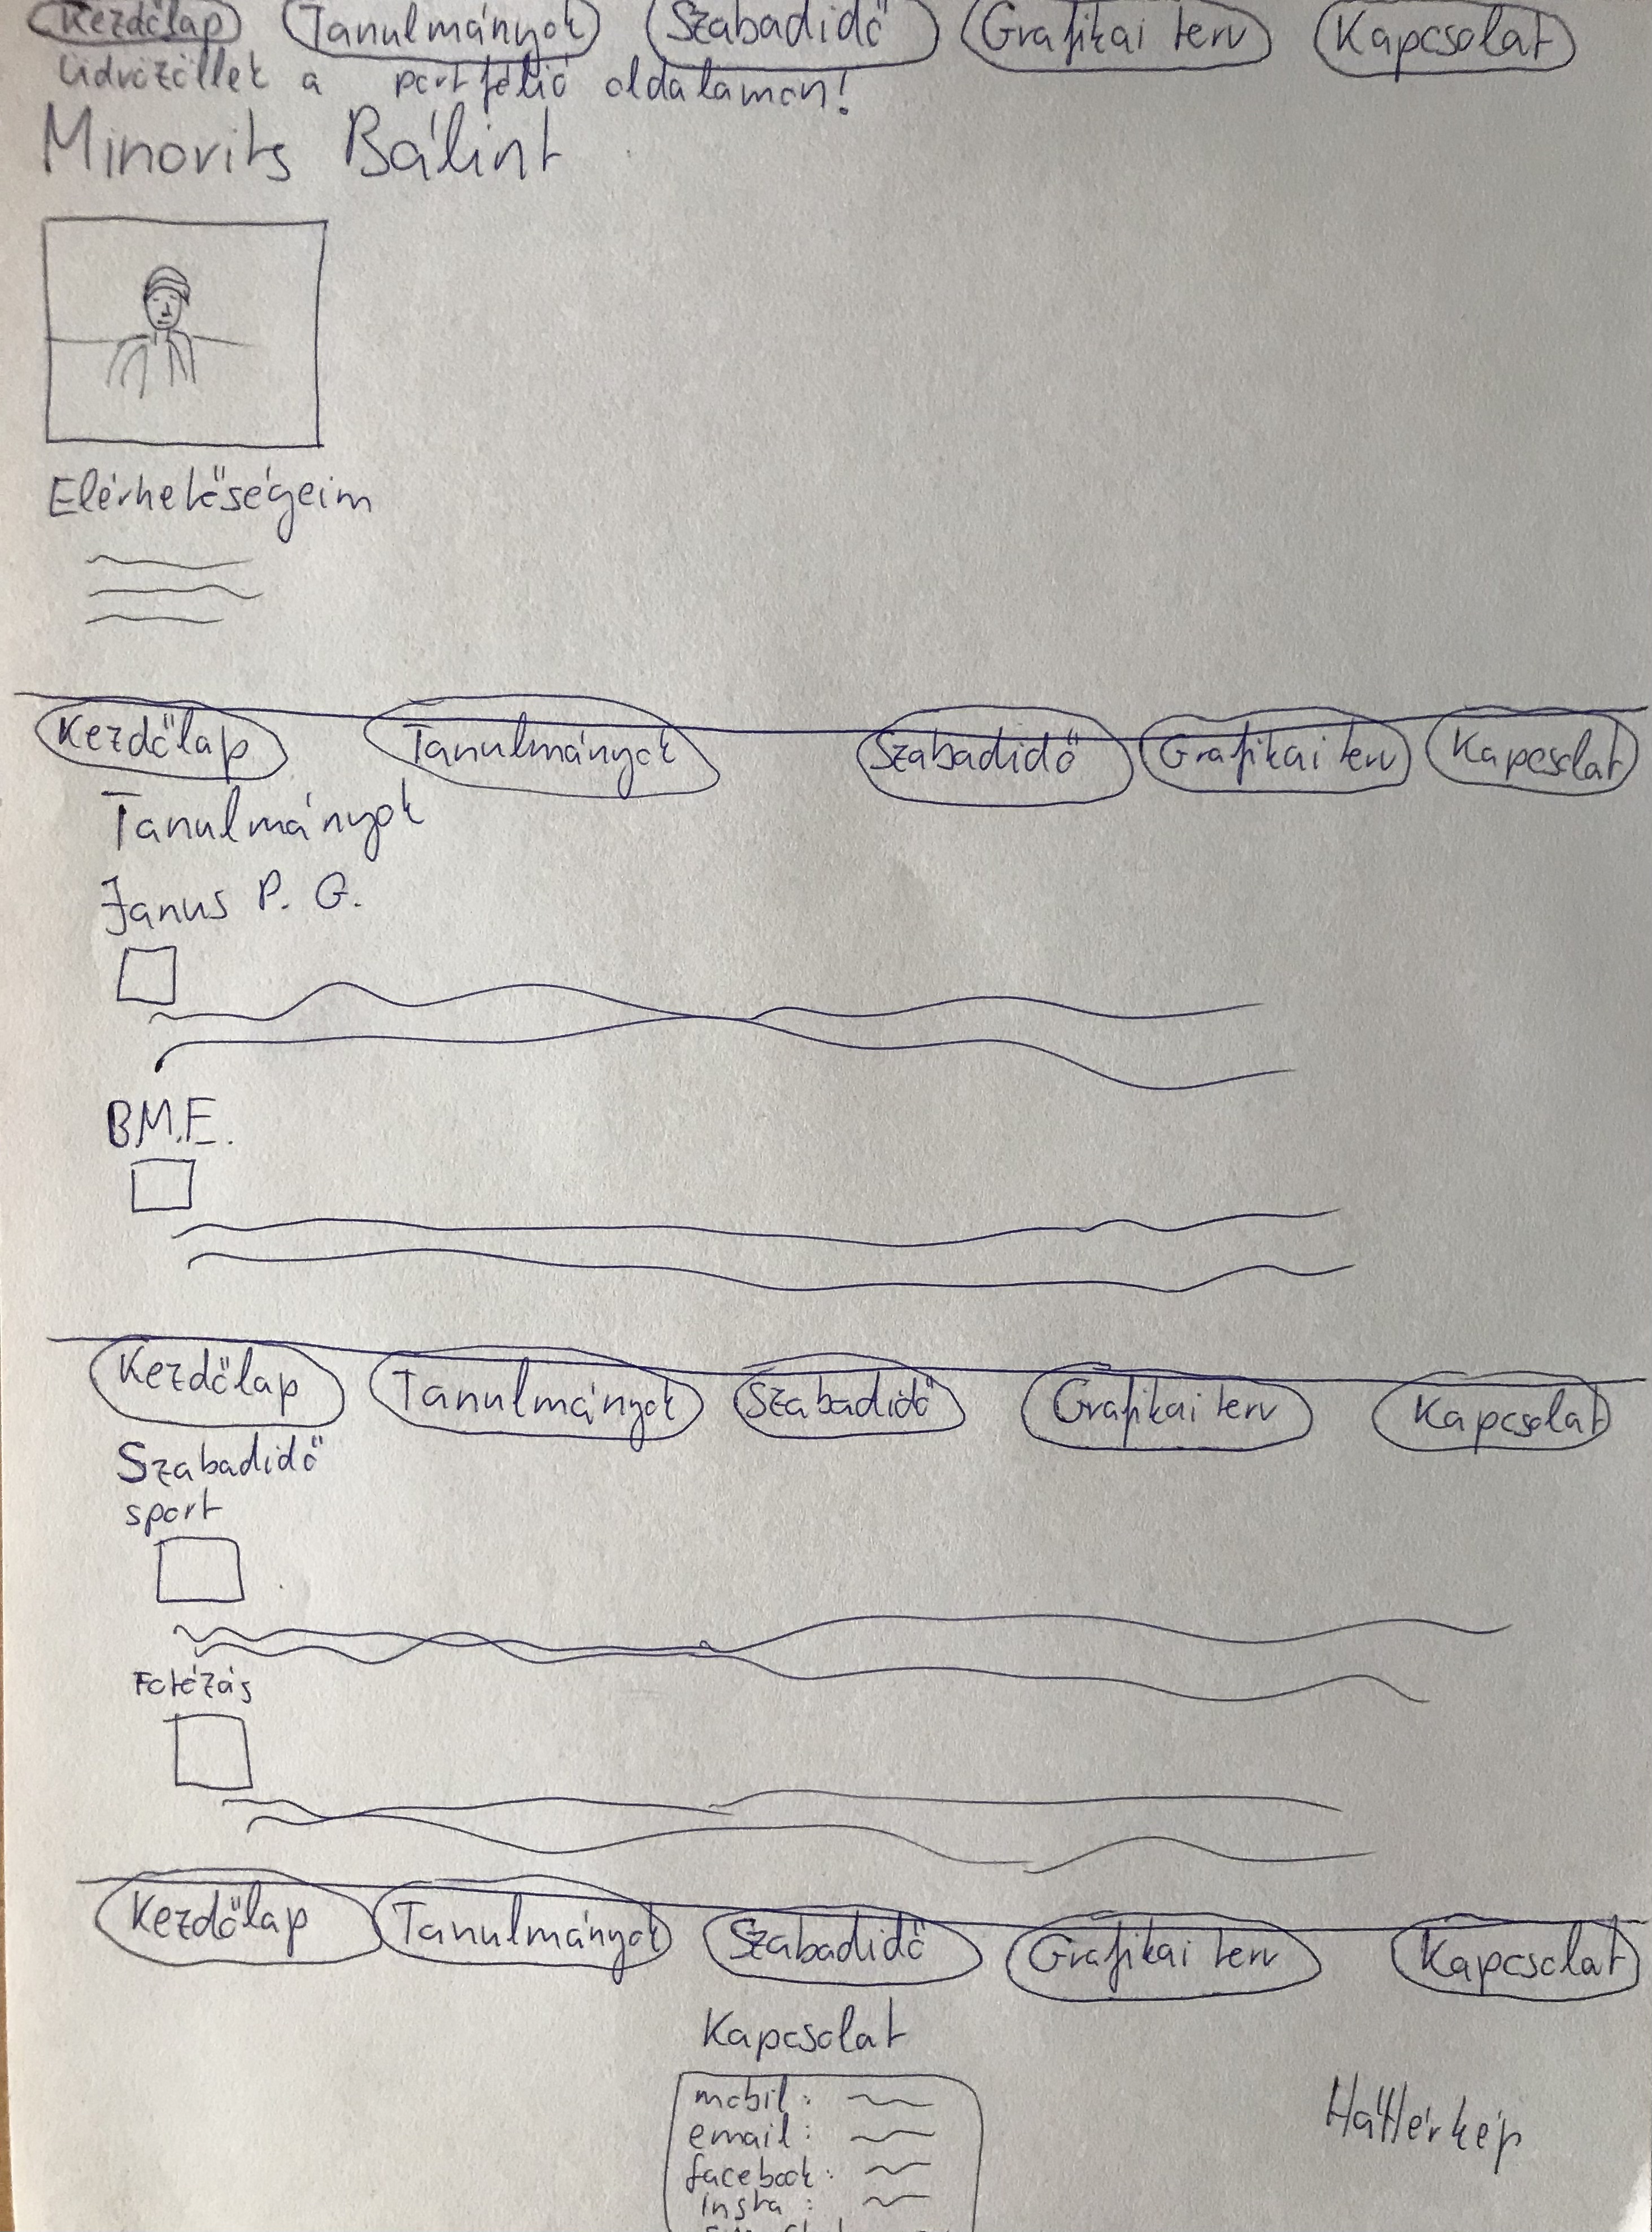 Kezdőlap Tanulmányok Szabadidő Grafikai terv Kapcsolat
Üdvözöllek a portfólió oldalamon!
Minorits Bálint
Elérhetőségeim
Kezdőlap Tanulmányok Szabadidő Grafikai terv Kapcsolat
Tanulmányok
Janus P. G.
B.M.E.
Kezdőlap Tanulmányok Szabadidő Grafikai terv Kapcsolat
Szabadidő
sport
Fotózás
Kezdőlap Tanulmányok Szabadidő Grafikai terv Kapcsolat
Kapcsolat
mobil:
email:
facebook:
insta:
Háttérkép